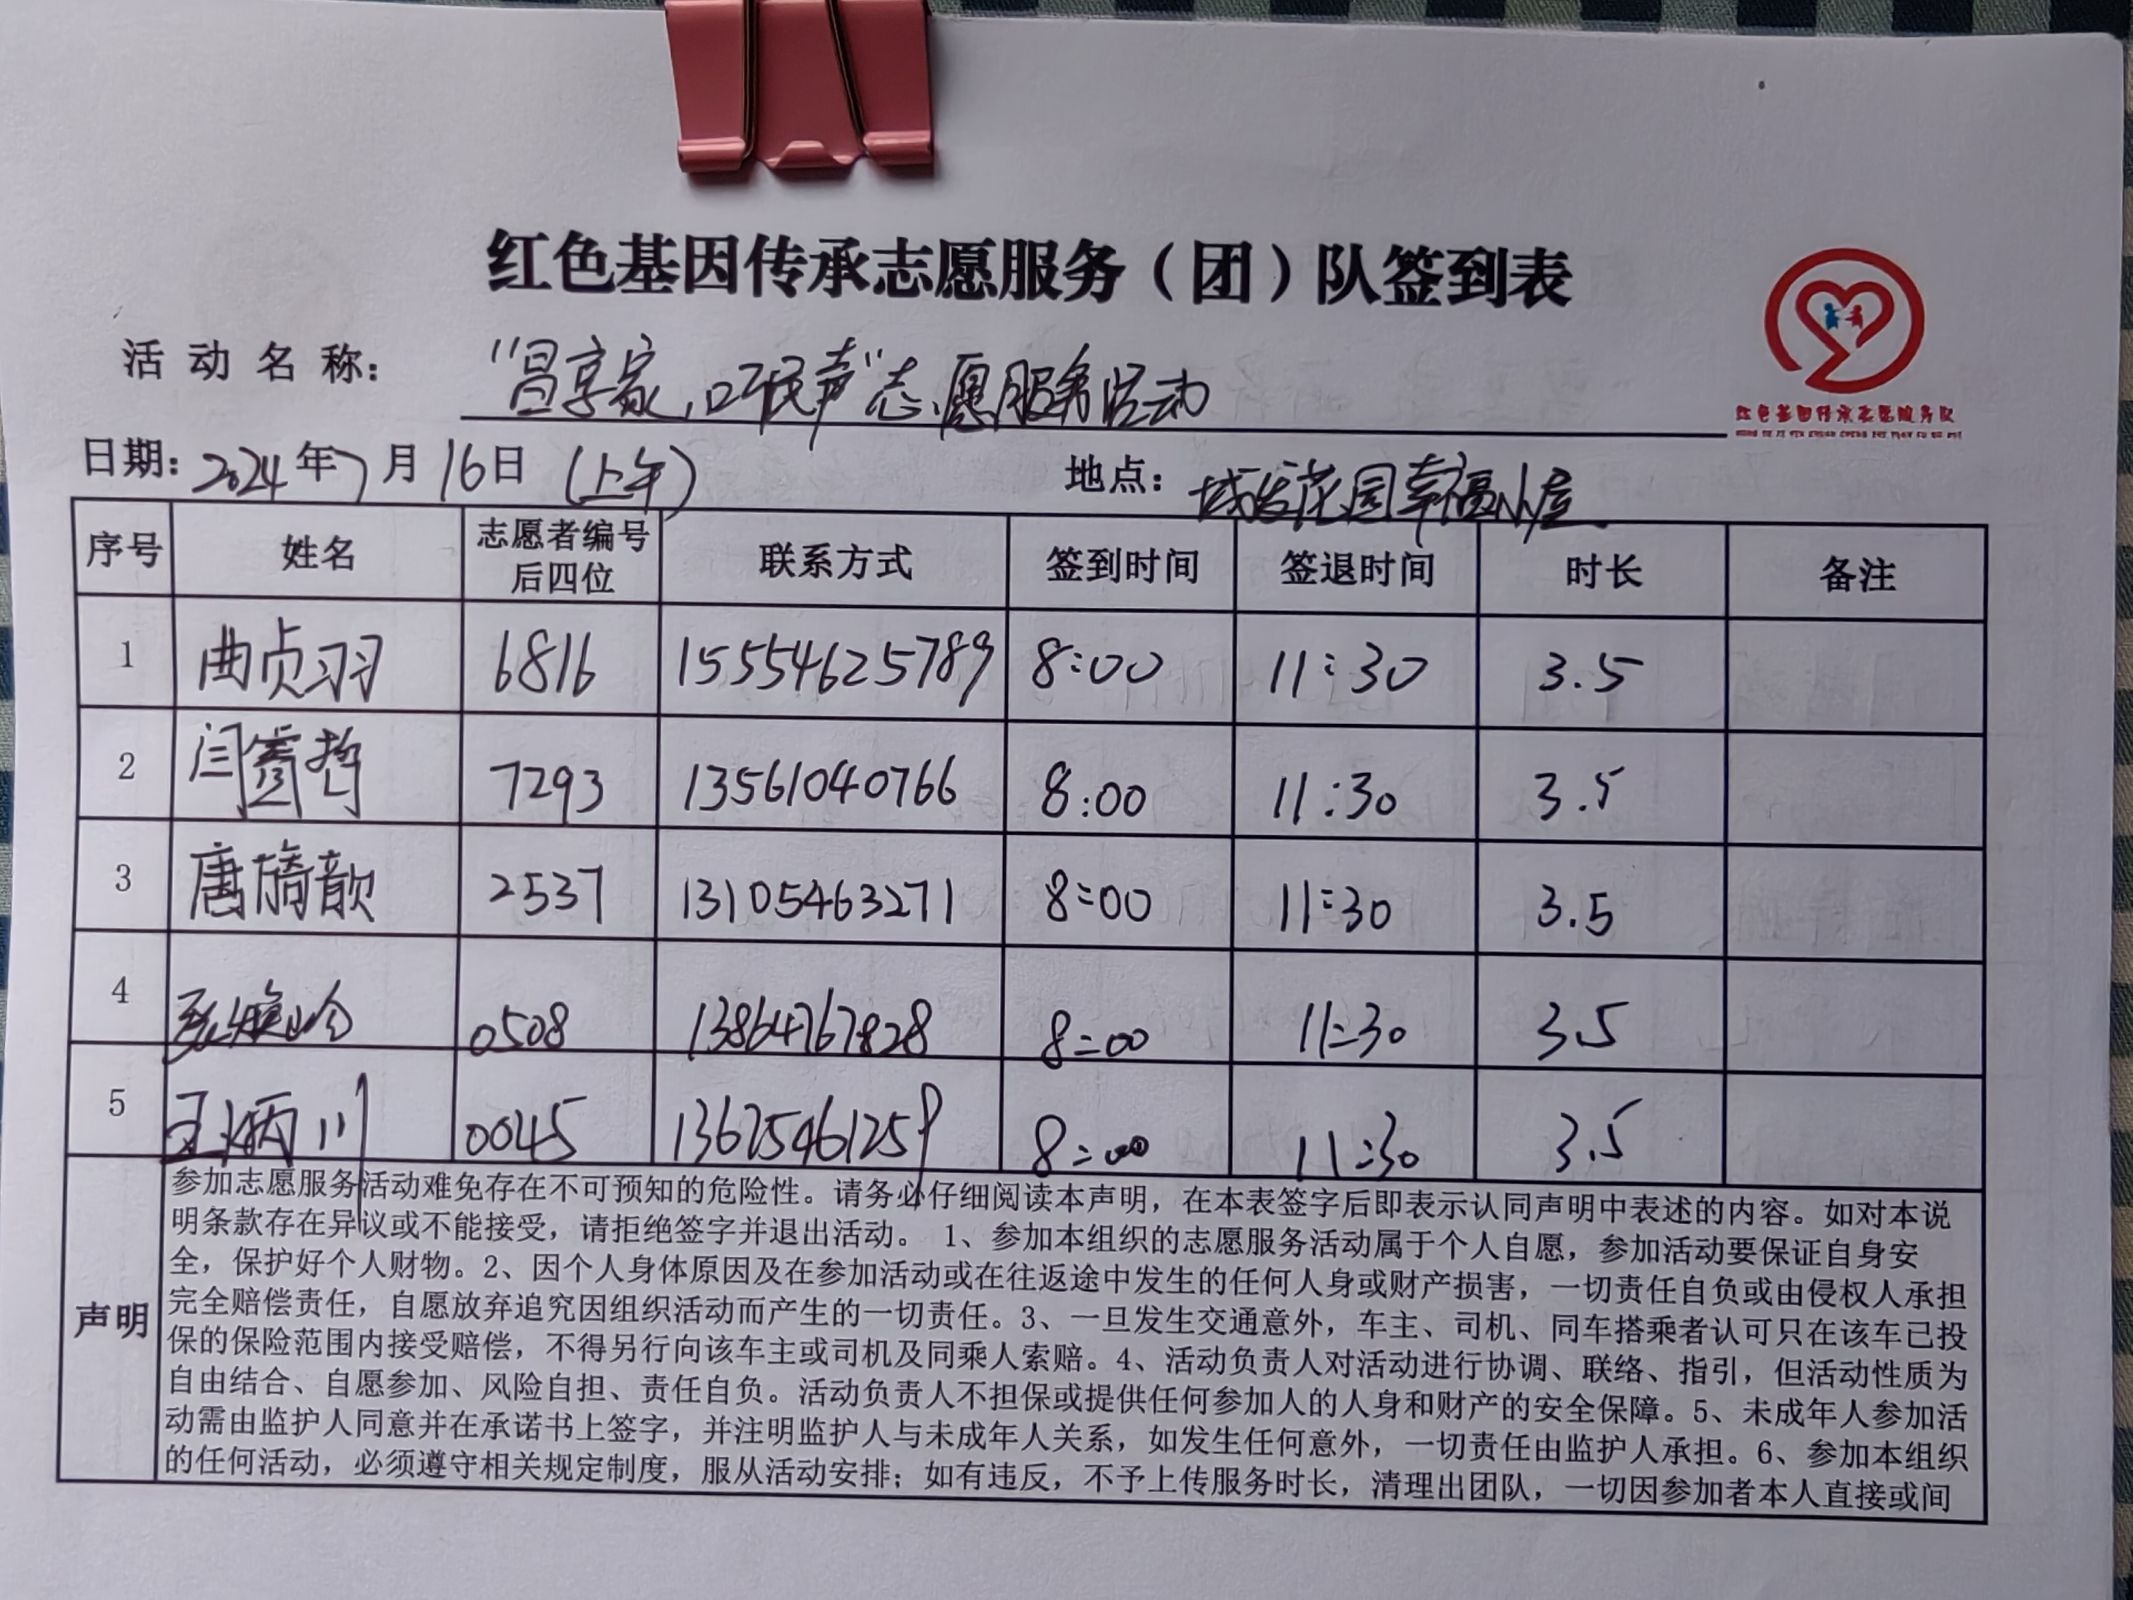 红色基因传承志愿服务（团）队签到表
活动名称： “昌享家，听民声”志愿服务活动
红色基因传承志愿服务队
日期：2024年7月16日（上午） 地点：城发花园幸福小屋
序号 姓名 志愿者编号后四位 联系方式 签到时间 签退时间 时长 备注
1 曲贞羽 6816 15554625789 8:00 11:30 3.5
2 闫睿哲 7293 13561040766 8:00 11:30 3.5
3 唐旖歆 2537 13105463271 8:00 11:30 3.5
4 0508 13864767828 8:00 11:30 3.5
5 王炳川 0045 13625461259 8:00 11:30 3.5
声明
参加志愿服务活动难免存在不可预知的危险性。请务必仔细阅读本声明，在本表签字后即表示认同声明中表述的内容。如对本说
明条款存在异议或不能接受，请拒绝签字并退出活动。 1、参加本组织的志愿服务活动属于个人自愿，参加活动要保证自身安
全，保护好个人财物。2、因个人身体原因及在参加活动或在往返途中发生的任何人身或财产损害，一切责任自负或由侵权人承担
完全赔偿责任，自愿放弃追究因组织活动而产生的一切责任。3、一旦发生交通意外，车主、司机、同车搭乘者认可只在该车已投
保的保险范围内接受赔偿，不得另行向该车主或司机及同乘人索赔。4、活动负责人对活动进行协调、联络、指引，但活动性质为
自由结合、自愿参加、风险自担、责任自负。活动负责人不担保或提供任何参加人的人身和财产的安全保障。5、未成年人参加活
动需由监护人同意并在承诺书上签字，并注明监护人与未成年人关系，如发生任何意外，一切责任由监护人承担。6、参加本组织
的任何活动，必须遵守相关规定制度，服从活动安排；如有违反，不予上传服务时长，清理出团队，一切因参加者本人直接或间